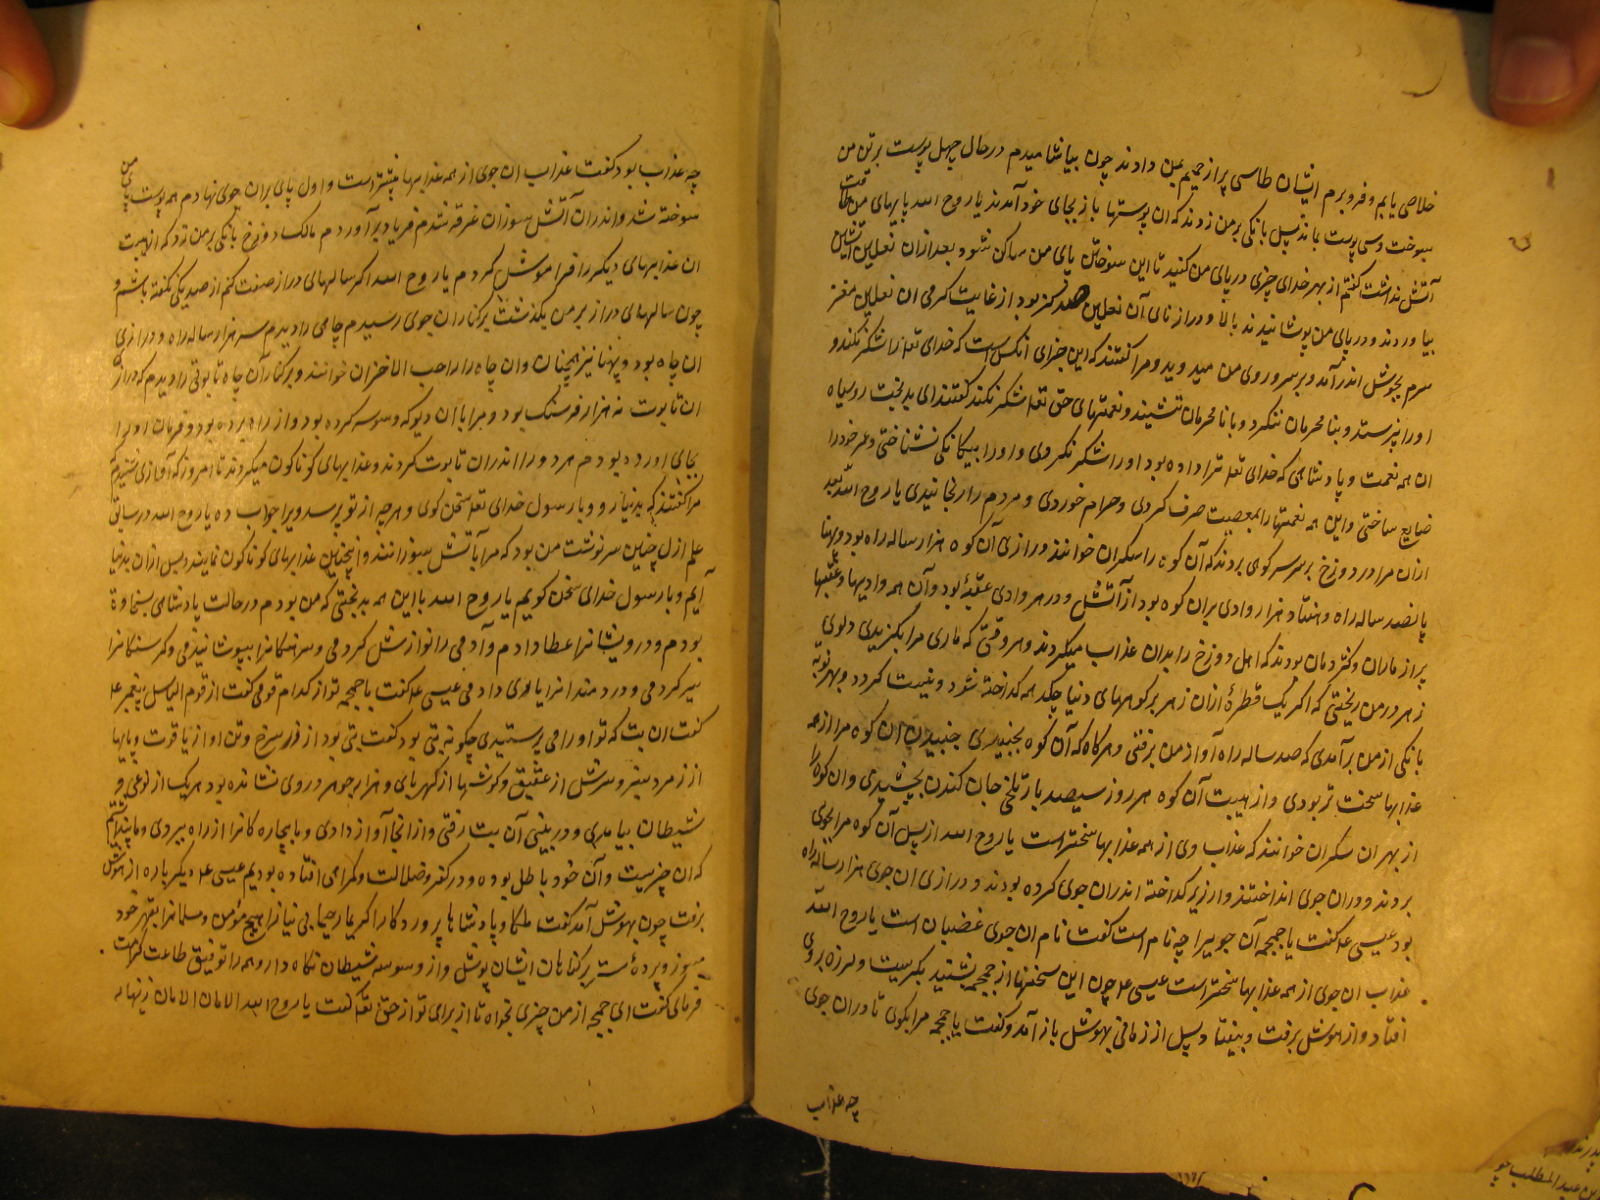 خلاصی یابم و فروبرم ایشان طاسی پر از حمیم بمن دادند چون بیاشامیدم در حال چهل پوست بر تن من
بسوخت و سی پوست بماند پس بانکی بر من زدند که ان پوستها باز بجای خود آمدند یا روح اسد پایهای من طاقت
آتش نداشت کفتم از بهر خدای چیزی در پای من کنید تا این سوختن پای من ساکن شود بعد ازان نعلین آتشین
بیاوردند و در پای من پوشانیدند بالا و درازنای آن نعلین صد کز بود از غایت کرمی ان نعلین مغز
سرم بجوش اندر آمد و بر سر و روی من میدوید و مرا کفتند که این جزای انکس است که خدای تعه را شکر نکند و
او را نپرستد و بنا محرمان ننکرد و با نا محرمان ننشیند و نعمتهای حق تعه شکر نکند کفتند ای بدبخت روسیاه
ان همه نعمت و پادشاهی که خدای تعه ترا داده بود او را شکر نکردی و او را بیکانکی نشناختی و عمر خود را
ضایع ساختی و این همه نعمتها را بمعصیت صرف کردی و حرام خوردی و مردم را رنجانیدی یا روح اسد بعد
ازان مرا در دوزخ بر سر کوهی بردند که آن کوه را سکران خوانند درازی آن کوه هزار ساله راه بود و پهنا
پانصد ساله راه و هفتاد هزار وادی بران کوه بود از آتش و در هر وادی عقبهٔ بود و آن همه وادیها و عقبها
پر از ماران و کژدمان بودند که اهل دوزخ را بدان عذاب میکردند و هر وقتی که ماری مرا بکزیدی دلوی
زهر در من ریختی که اکر یک قطرهٔ ازان زهر بر کوههای دنیا چکد همه کداخته شود و نیست کردد و بهر نوبه
بانکی از من برآمدی که صد ساله راه آواز من برفتی و هرکاه که آن کوه بجنبیدی جنبیدن ان کوه مرا از همه
عذابها سخت تر بودی و از هیبت آن کوه هر روز سیصد بار تلخی جان کندن بچشیدی و ان کوه را
از بهر ان سکران خوانند که عذاب وی از همه عذابها سختر است یا روح اسد از پس آن کوه مرا بجوی
بردند و دران جوی انداختند و ارزیز کداخته اندران جوی کرده بودند و درازی ان جوی هزار ساله راه
بود عیسی عه کفت یا جمجمه آن جوی را چه نام است کفت نام ان جوی غضبان است یا روح اسد
عذاب ان جوی از همه عذابها سختر است عیسی عه چون این سخنها از جمجمه بشنید بکریست و لرزه بر وی
افتاد و از هوش برفت و بیفتاد پس از زمانی بهوش باز آمد و کفت یا جمجمه مرا بکوی تا دران جوی
چه عذاب
چه عذاب بود کفت عذاب ان جوی از همه عذابها بیشتر است و اول پای بران جوی نهادم همه پوست پای من
سوخته شد و اندران آتش سوزان غرقه شدم فریاد برآوردم مالک دوزخ بانکی بر من زد که از هیبت
ان عذابهای دیکر را فراموش کردم یا روح اسد اکر سالهای دراز صفت کنم از صد یکی نکفته باشم و
چون سالهای دراز بر من بکذشت بر کنار ان جوی رسیدم چاهی را دیدم سه هزار ساله راه درازی
ان چاه بود و پهنا نیز همچنان وان چاه را جب الاحزان خوانند و بر کنار آن چاه تابوتی را دیدم که درازی
ان تابوت نه هزار فرسنک بود و مرا با ان دیو که وسوسه کرده بود و از راه برده بود و فرمان او را
بجای اورده بودم هر دو را اندران تابوت کردند و عذابهای کوناکون میکردند تا امروز که آوازی شنیدم
مرا کفتند که بدنیا رو و با رسول خدای تعه سخن کوی و هرچه از تو پرسد ویرا جواب ده یا روح اسد در سابق
علم ازل چنین سرنوشت من بود که مرا بآتش بسوزانند و اینچنین عذابهای کوناکون نمایند و پس ازان بدنیا
آیم و با رسول خدای سخن کویم یا روح اسد با این همه بدبختی که من بودم در حالت پادشاهی بسخاوه
بودم و درویشانرا عطا دادم و آدمی را نوازش کردمی و برهنکانرا بپوشانیدمی و کرسنکانرا
سیر کردمی و دردمندانرا یاوری دادمی عیسی عه کفت یا جمجمه تو از کدام قومی کفت از قوم الیاس پیغمبر عه
کفت ان بت که تو او را می پرستیدی چکونه بتی بود کفت بتی بود از زر سرخ و تن او از یاقوت و پایها
از زمرد سبز و سرش از عقیق و کوشها از کهربای و هزار جوهر در وی نشانده بود هر یک از نوعی و
شیطان بیامدی و در بینی آن بت رفتی و از انجا آواز دادی و ما بیچاره کانرا از راه ببردی و ما پنداشتیم
که ان چیزیست وآن خود باطل بوده و در کفر و ضلالت و کمراهی افتاده بودیم عیسی عه دیکر باره از هوش
برفت چون بهوش آمد کفت ملکا و پادشاها پروردکارا کریما رحیما بی نیازا هیچ مؤمن و مسلمانرا بقهر خود
مسوز و پردهٔ ستر بر کناهان ایشان پوش و از وسوسه شیطان نکاه دار و همه را توفیق طاعت کرامت
فرمای کفت ای جمجمه از من چیزی بخواه تا از برای تو از حق تعه کفت یا روح اسد الامان الامان زنهار
عبد المطلب چو